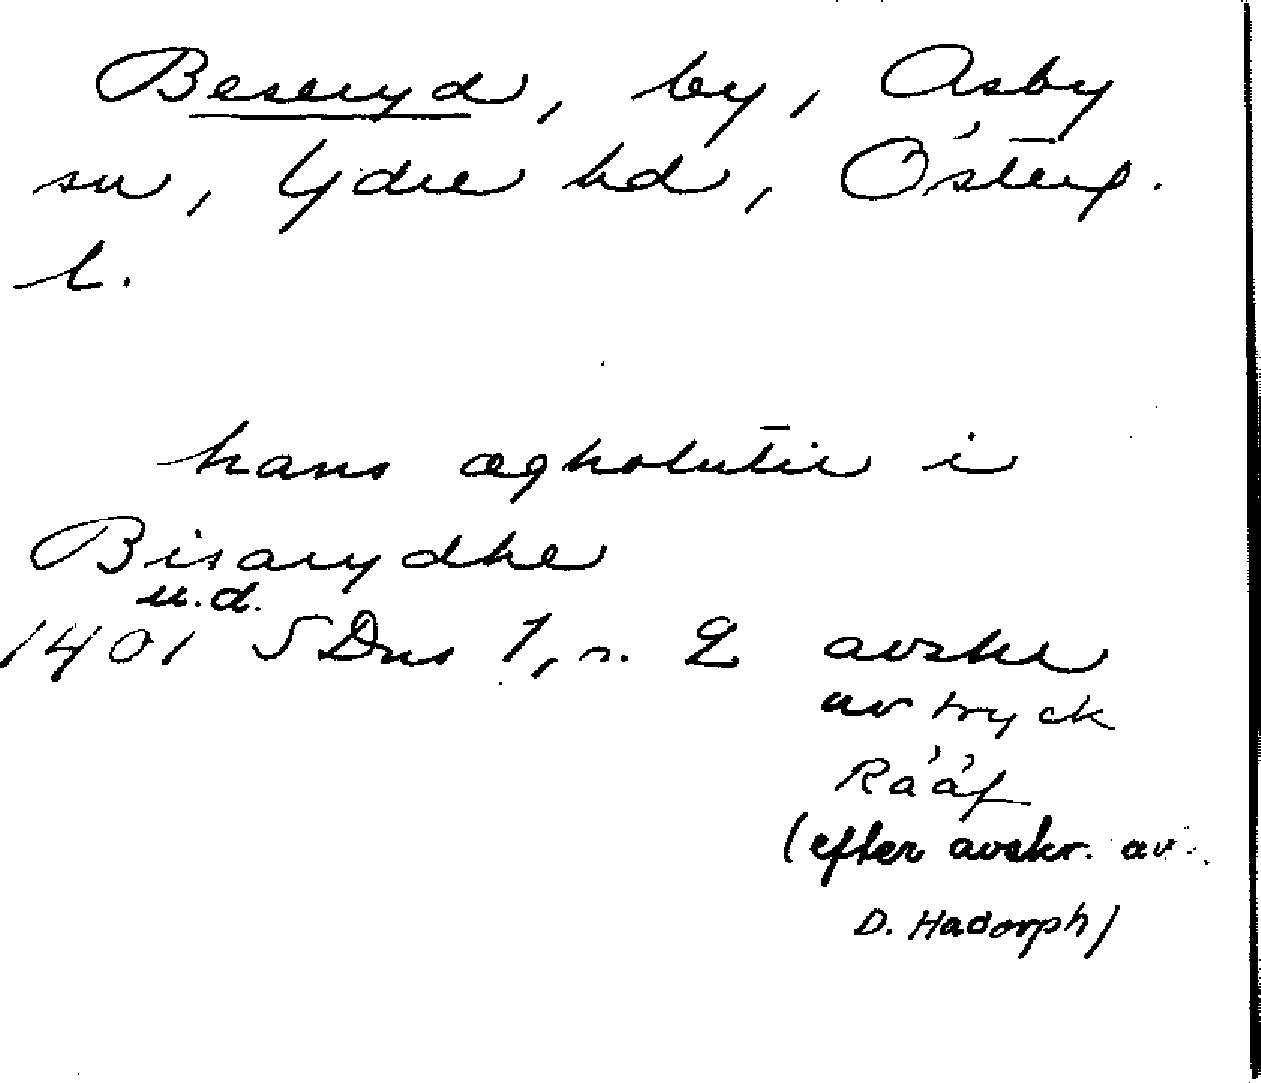 Beseryd, by, Asby
sn, Ydre hd, Österg.
l.
hans ægholutir i
Bisarydhe
u.d.
1401 SDns 1, n. 2 avskr
av tryck
Rååf
(efter avskr. av
D. Hadorph)